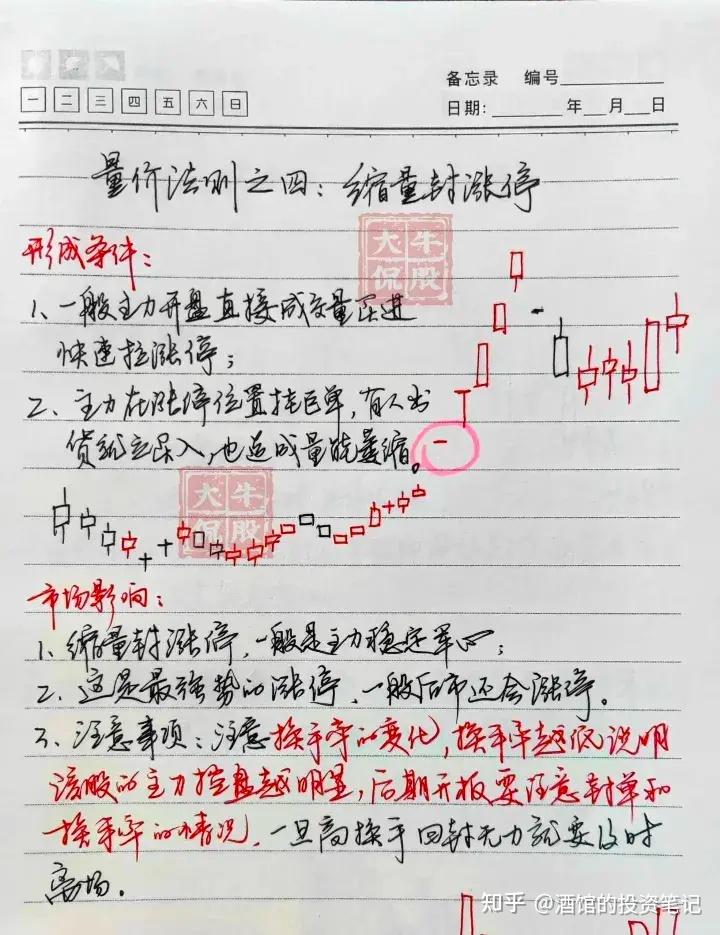 备忘录 编号
一 二 三 四 五 六 日
日期: 年 月 日
量价法则之四：缩量封涨停
大牛
侃股
形成条件：
1、一般主力开盘直接成交量压进
快速拉涨停；
2、主力在涨停位置挂巨单，有人出
货就立足入，也造成量能萎缩。
大牛
侃股
市场影响：
1、缩量封涨停，一般是主力稳定军心；
2、这是最强势的涨停，一般后市还会涨停。
3、注意事项：注意换手率的变化，换手率越低说明
该股的主力控盘越明显，后期开板要注意封单和
换手率的情况，一旦高换手回封无力就要及时
离场。
知乎 @酒馆的投资笔记